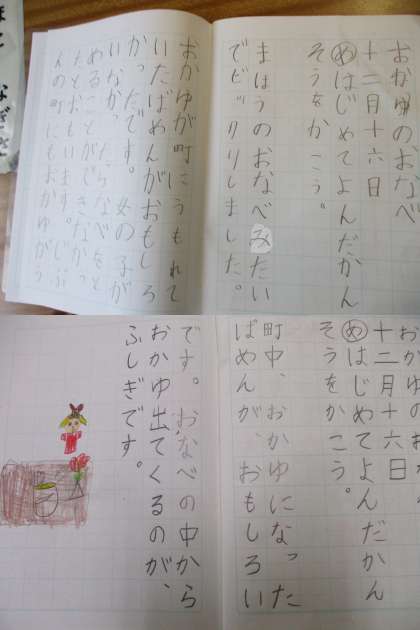 おかゆのおなべ
十二月十六日
めはじめてよんだかん
そうをかこう。
まほうのおなべみたい
でビックリしました。
おかゆが町にうもれて
いたばめんがおもしろ
かったです。女の子が
いなかったらなべをと
めることができなかっ
たとおもいます。じぶ
んの町にもおかゆがう
おかゆのおな
十二月十六日
めはじめてよんだかん
そうをかこう。
町中、おかゆになった
ばめんが、おもしろい
です。おなべの中から
おかゆ出てくるのが、
ふしぎです。